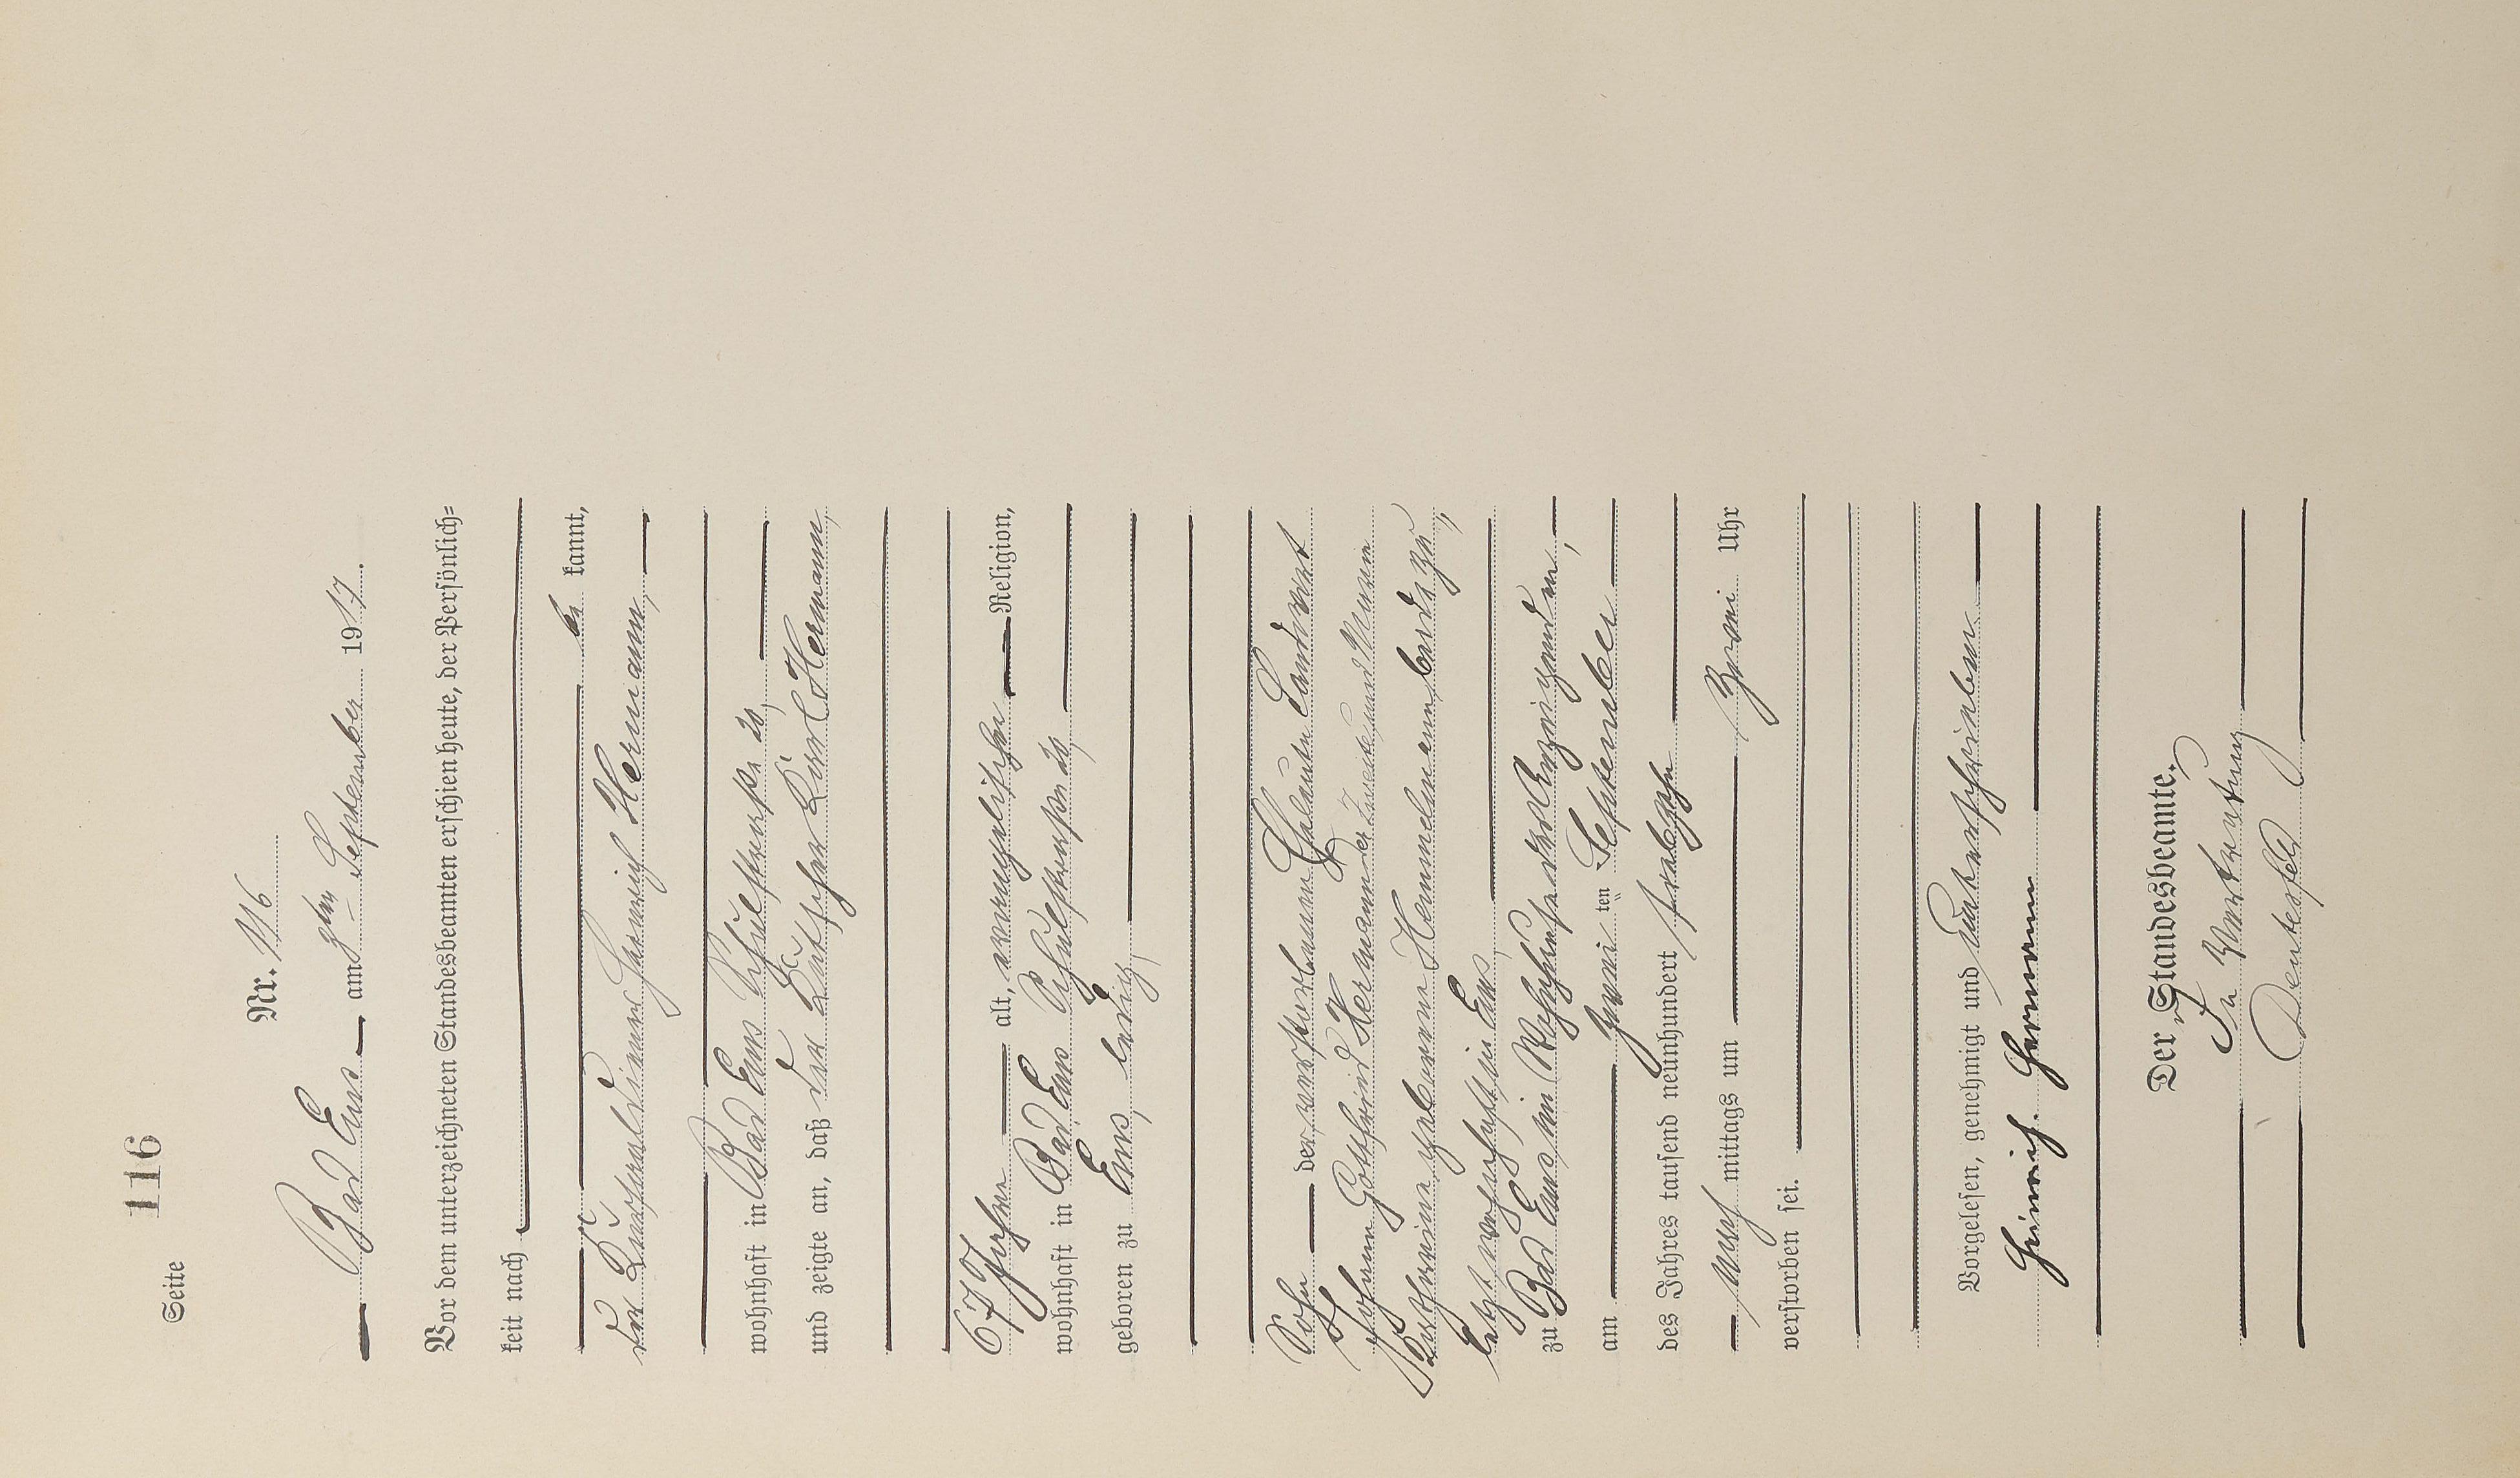 Seite 116
Nr. 116
Bad Ems am 3ten September 1917.
Vor dem unterzeichneten Standesbeamten erschien heute, der Persönlich=
keit nach
be kannt,
der Kurhausdiener Heinrich Hermann,
wohnhaft in Bad Ems Schulstraße 20,
und zeigte an, daß der Kutscher Karl Hermann,
67 Jahre alt, evangelischer Religion,
wohnhaft in Bad Ems Schulstraße 20,
geboren zu Ems, ledig,
Sohn der verstorbenen Eheleute Landwirt
Johann Gottfried Hermann und Marie
Katharine geborene Hemmelmann, beide zu,
letzt wohnhaft in Ems,
zu Bad Ems, im Wohnhause des Anzeigenden,
am zwei ten September
des Jahres tausend neunhundert siebzehn
nach mittags um zwei Uhr
verstorben sei.
Vorgelesen, genehmigt und unterschrieben.
Heinrich. Hermann
Der Standesbeamte.
In Vertretung